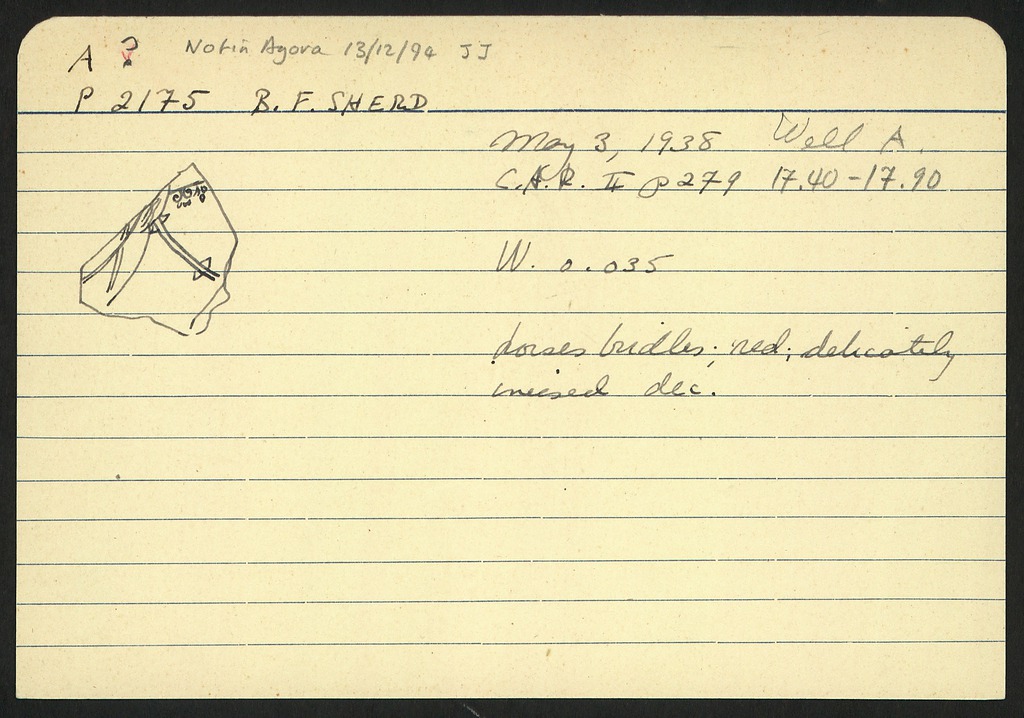 A ? Not in Agora 13/12/94 JJ
P 2175 B. F. SHERD
May 3, 1938 Well A.
C.A.R. II p 279 17.40-17.90
W. 0.035
horses bridles; red; delicately
incised dec.